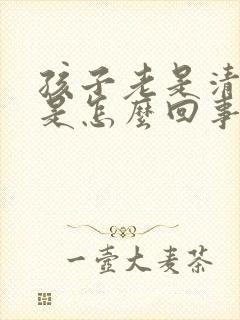 孩子老是清
是怎麼回事
一壺大麦茶